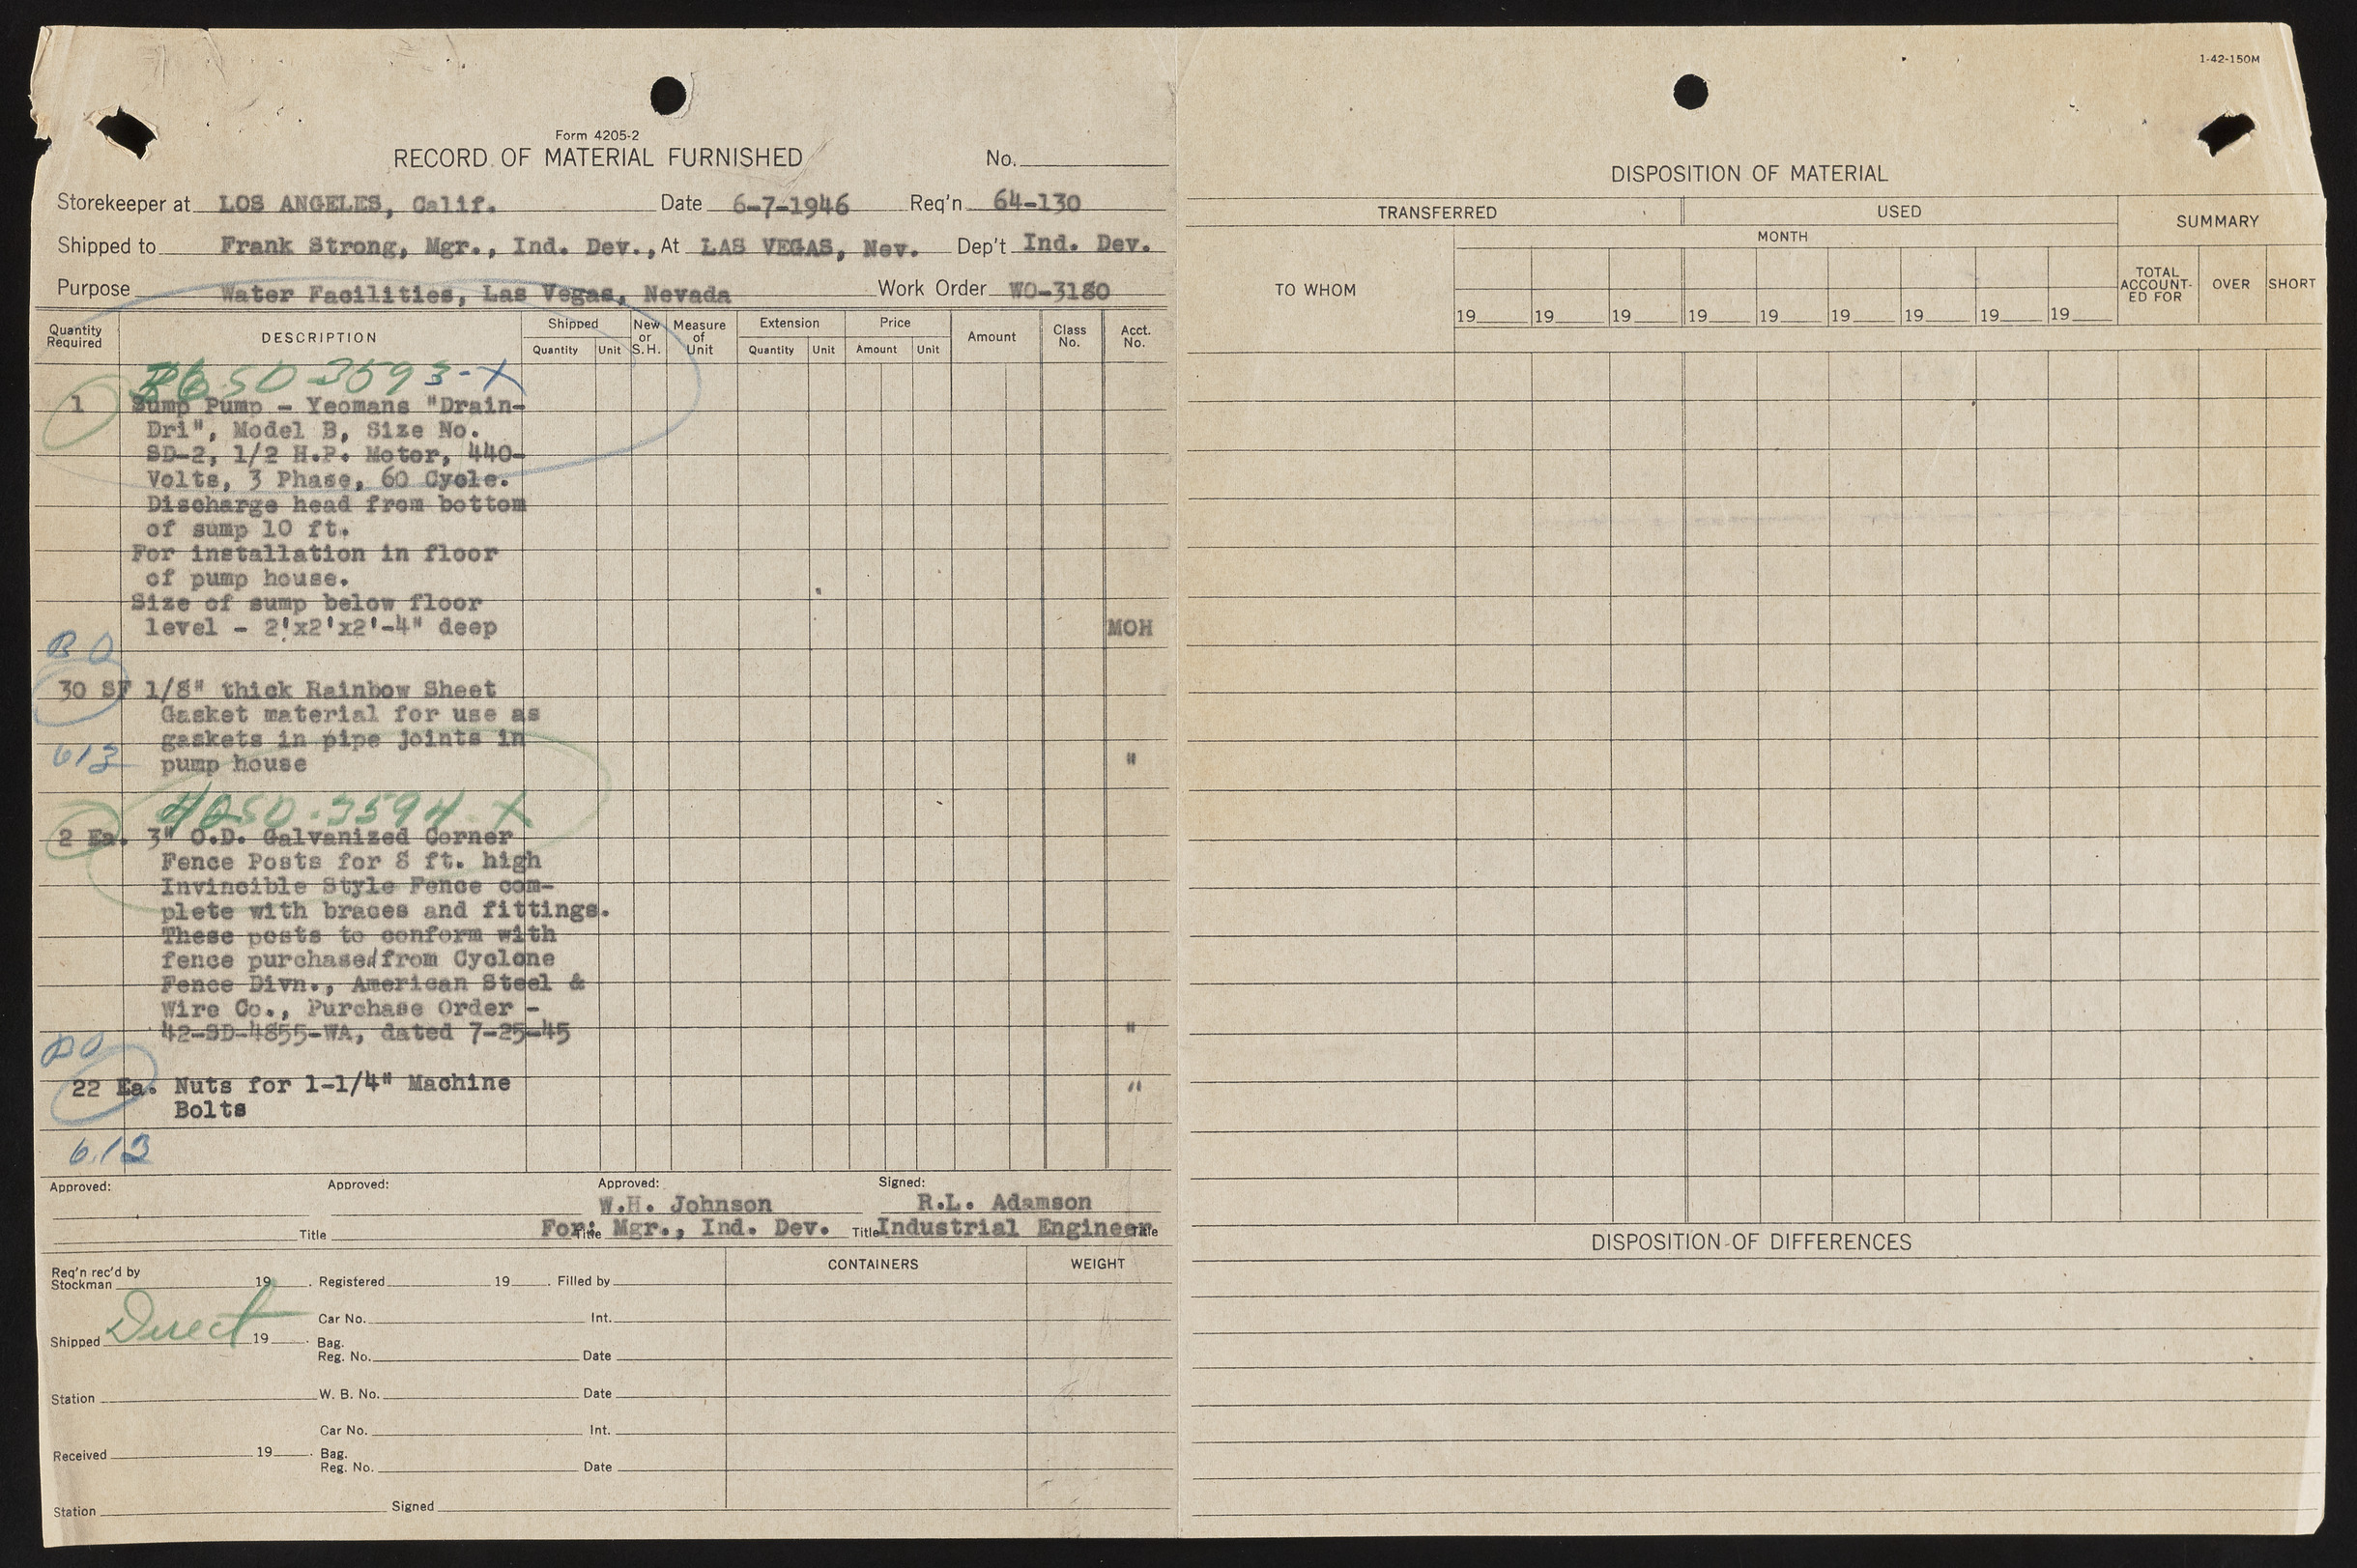 Form 4205-2
RECORD OF MATERIAL FURNISHED No.
Storekeeper at LOS ANGELES, Calif. Date 6-7-1946 Req'n 64-130
Shipped to Frank Strong, Mgr., Ind. Dev., At LAS VEGAS, Nev. Dep't Ind. Dev.
Purpose Water Facilities, Las Vegas, Nevada Work Order WO-3180
Quantity Required DESCRIPTION Shipped Quantity Unit New or S.H. Measure of Unit Extension Quantity Unit Price Amount Unit Amount Class No. Acct. No.
50-3593-X
1 Sump Pump - Yeomans "Drain-
Dri", Model B, Size No.
SD-2, 1/2 H.P. Motor, 440-
Volts, 3 Phase, 60 Cycle.
Discharge head from bottom
of sump 10 ft.
For installation in floor
of pump house.
Size of sump below floor
level - 2'x2'x2'-4" deep MOH
BO
30 SF 1/8" thick Rainbow Sheet
Gasket material for use as
gaskets in pipe joints in
613 pump house "
50-3594-X
2 Ea. 3" O.D. Galvanized Corner
Fence Posts for 8 ft. high
Invincible Style Fence com-
plete with braces and fittings.
These posts to conform with
fence purchased from Cyclone
Fence Divn., American Steel &
Wire Co., Purchase Order -
42-SD-4855-WA, dated 7-25-45 "
BO
22 Ea. Nuts for 1-1/4" Machine "
Bolts
613
Approved: Approved: Approved: Signed:
W.H. Johnson R.L. Adamson
Title For: Title Mgr., Ind. Dev. Title Industrial Engineer Title
Req'n rec'd by
Stockman 19 . Registered 19 . Filled by CONTAINERS WEIGHT
Car No. Int.
Shipped Direct 19 . Bag.
Reg. No. Date
Station W. B. No. Date
Car No. Int.
Received 19 . Bag.
Reg. No. Date
Station Signed
1-42-150M
DISPOSITION OF MATERIAL
TRANSFERRED USED SUMMARY
MONTH
TO WHOM TOTAL ACCOUNT-ED FOR OVER SHORT
19 19 19 19 19 19 19 19 19
DISPOSITION OF DIFFERENCES